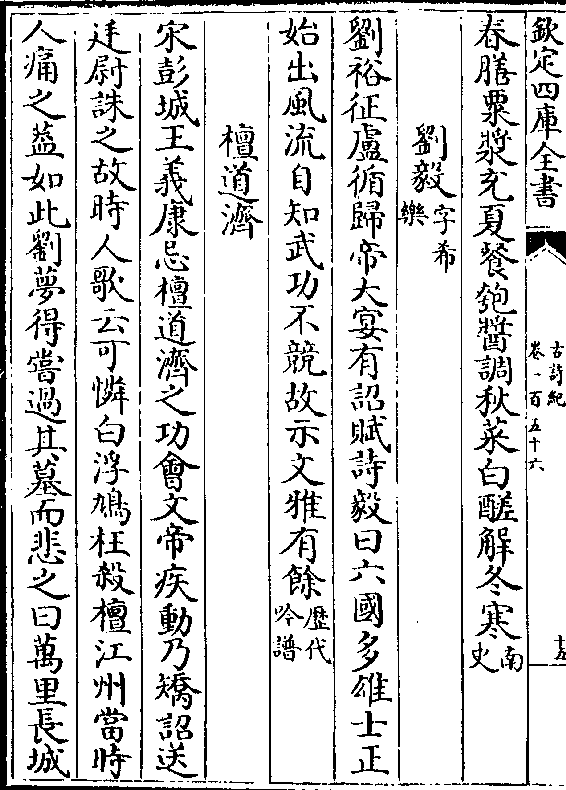 欽定四庫全書
古詩紀
卷一百五十六
十五
春膳粟漿充夏餐匏醬調秋菜白醝解冬寒南史
劉毅字希樂
劉裕征盧循歸帝大宴有詔賦詩毅曰六國多雄士正
始出風流自知武功不競故示文雅有餘歴代吟譜
檀道濟
宋彭城王義康忌檀道濟之功會文帝疾動乃矯詔送
廷尉誅之故時人歌云可憐白浮鳩枉殺檀江州當時
人痛之葢如此劉夢得嘗過其墓而悲之曰萬里長城